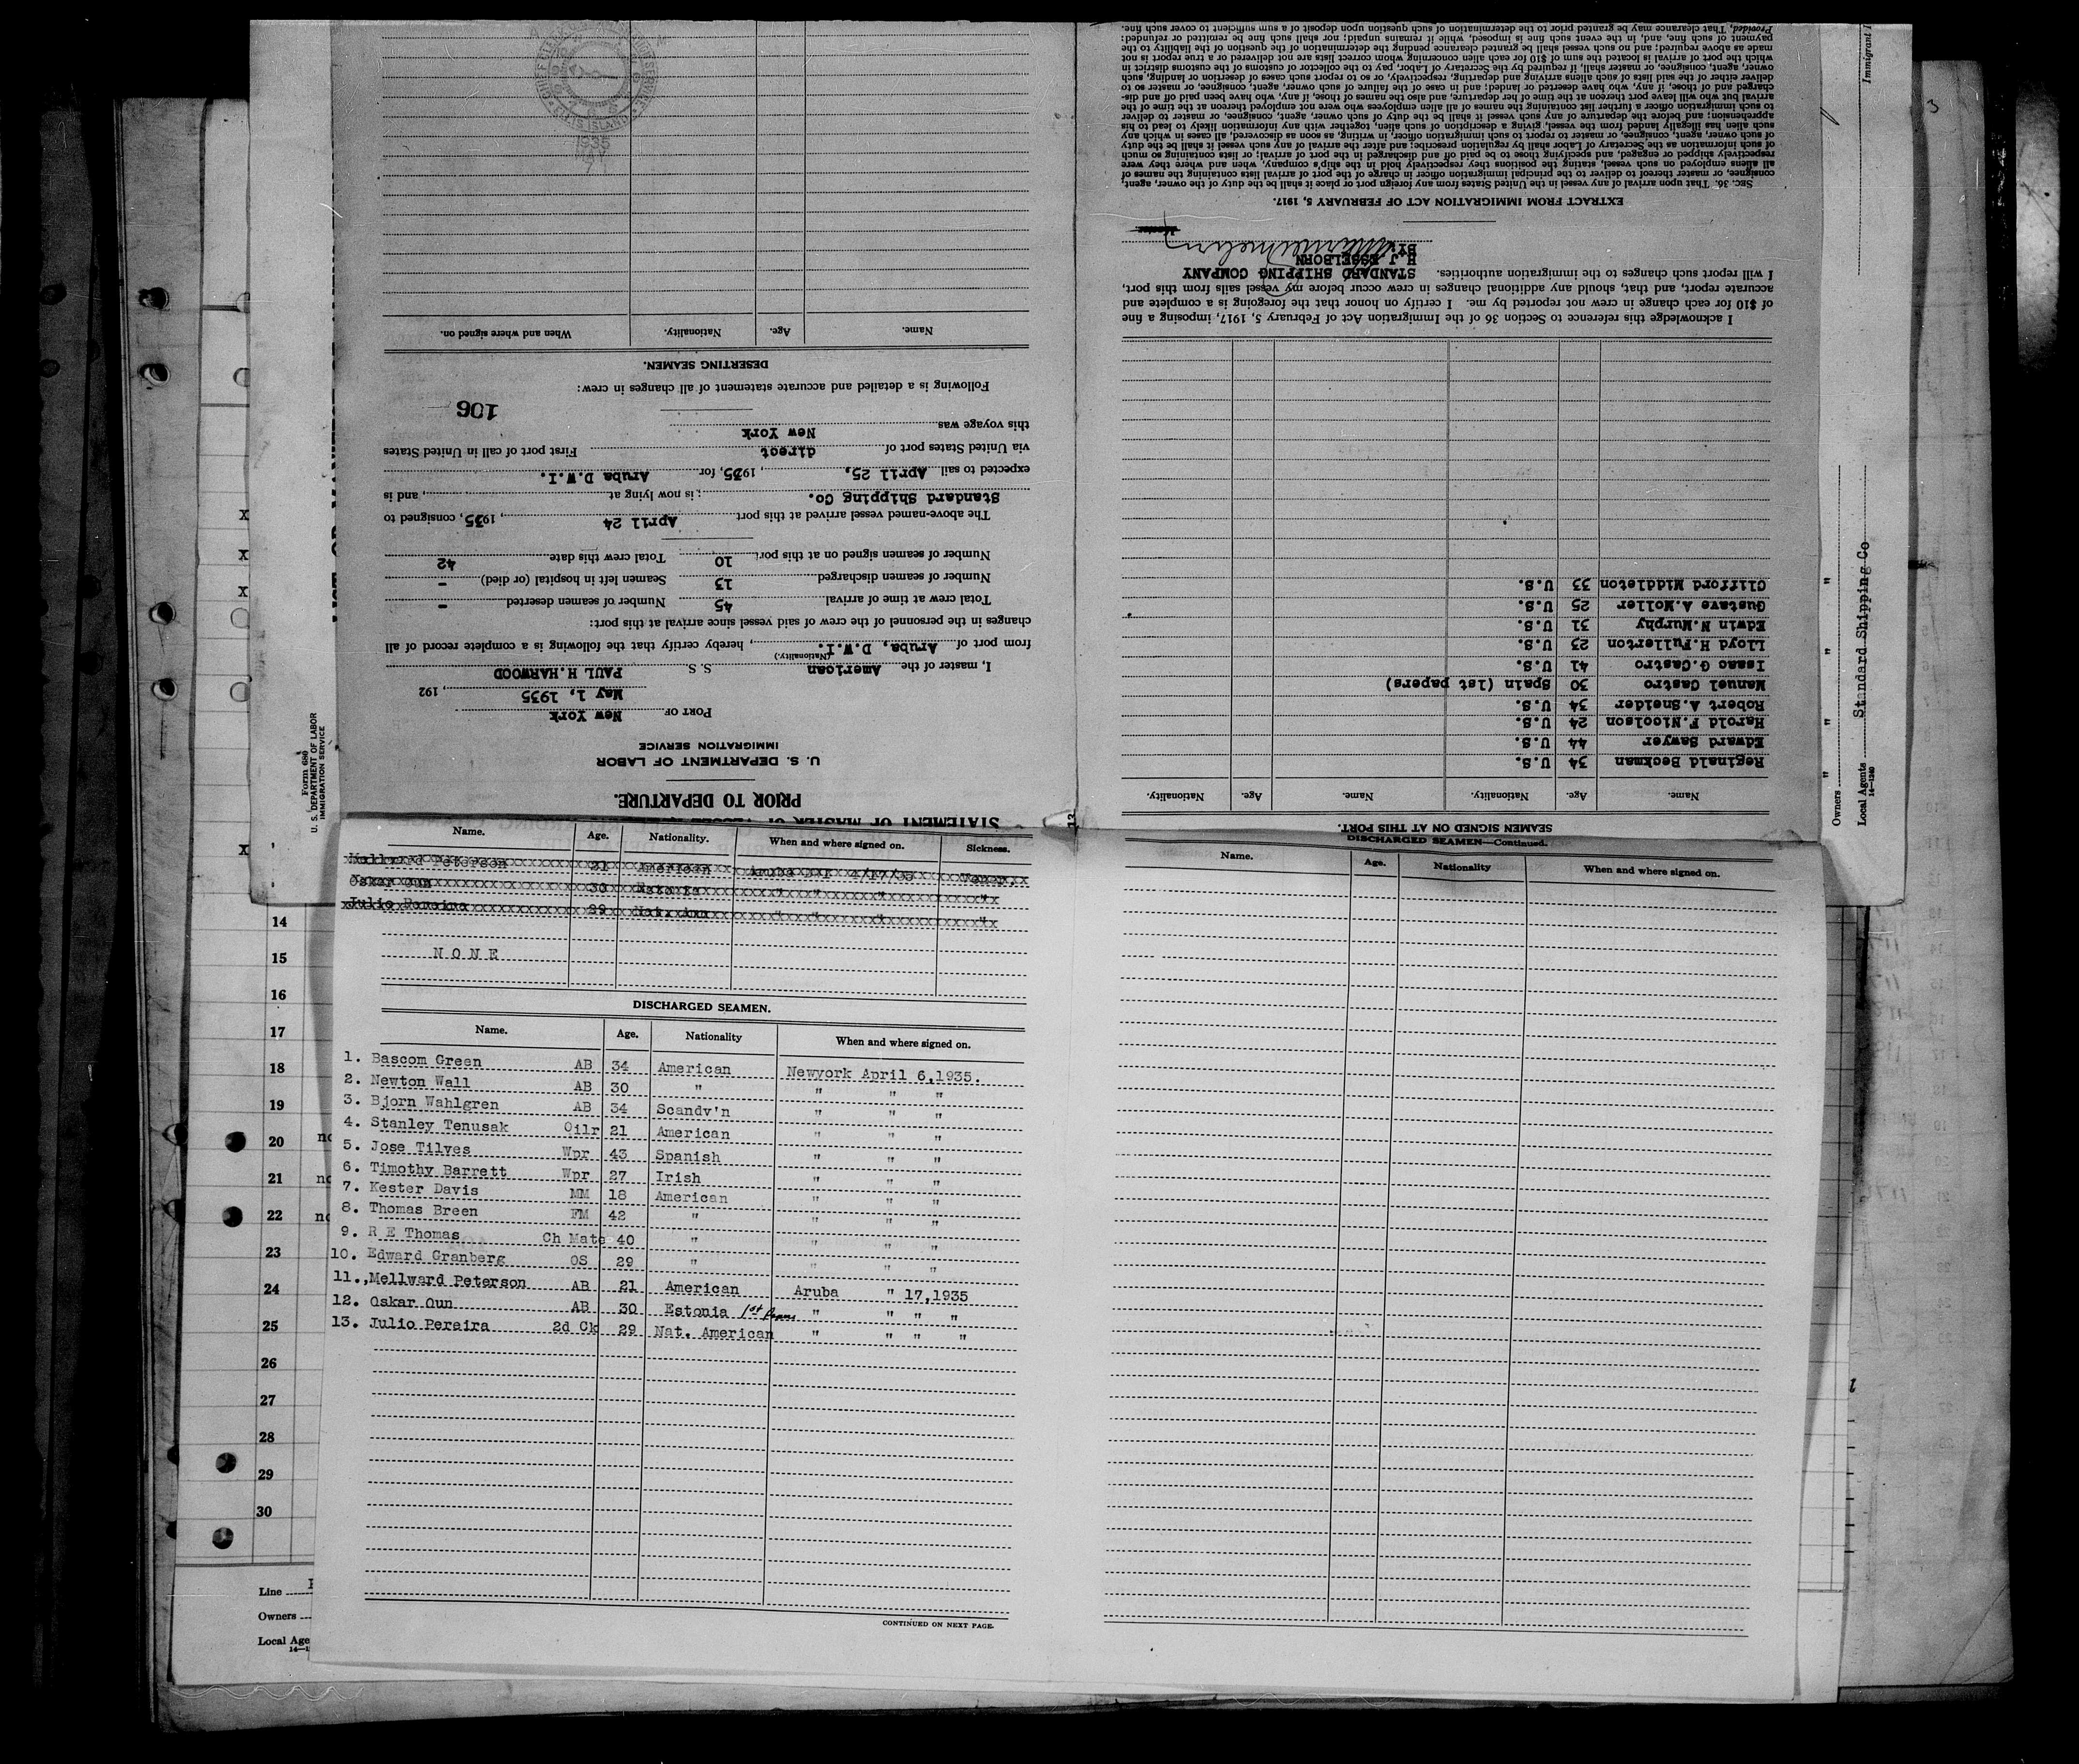 STATEMENT OF MASTER OF VESSEL
PRIOR TO DEPARTURE.
U. S. DEPARTMENT OF LABOR
IMMIGRATION SERVICE
PORT OF New York
May 1, 1935, 192
I, master of the American S. S. PAUL H. HARWOOD
(Nationality.)
from port of Aruba, D.W.I., hereby certify that the following is a complete record of all
changes in the personnel of the crew of said vessel since arrival at this port:
Total crew at time of arrival 45 Number of seamen deserted -
Number of seamen discharged 13 Seamen left in hospital (or died) -
Number of seamen signed on at this port 10 Total crew this date 42
The above-named vessel arrived at this port April 24, 1935, consigned to
Standard Shipping Co.; is now lying at , and is
expected to sail April 25, 1935, for Aruba D.W.I.
via United States port of direct First port of call in United States
this voyage was New York
106
Following is a detailed and accurate statement of all changes in crew:
DESERTING SEAMEN.
Name. Age. Nationality. When and where signed on.
1935
SEAMEN SIGNED ON AT THIS PORT.
Name. Age. Nationality. Name. Age. Nationality.
Reginald Beckman 34 U.S.
Edward Sawyer 44 U.S.
Harold F.Nicolson 24 U.S.
Robert A.Sneider 34 U.S.
Manuel Castro 30 Spain (1st papers)
Isaac G.Castro 41 U.S.
Lloyd H.Fullerton 23 U.S.
Edwin N.Murphy 31 U.S.
Gustave A.Moller 25 U.S.
Clifford Middleton 33 U.S.
I acknowledge this reference to Section 36 of the Immigration Act of February 5, 1917, imposing a fine
of $10 for each change in crew not reported by me. I certify on honor that the foregoing is a complete and
accurate report, and that, should any additional changes in crew occur before my vessel sails from this port,
I will report such changes to the immigration authorities. STANDARD SHIPPING COMPANY
H J ESSELBORN
By
EXTRACT FROM IMMIGRATION ACT OF FEBRUARY 5, 1917.
SEC. 36. That upon arrival of any vessel in the United States from any foreign port or place it shall be the duty of the owner, agent,
consignee, or master thereof to deliver to the principal immigration officer in charge of the port of arrival lists containing the names of
all aliens employed on such vessel, stating the positions they respectively hold in the ship's company, when and where they were
respectively shipped or engaged, and specifying those to be paid off and discharged in the port of arrival; or lists containing so much
of such information as the Secretary of Labor shall by regulation prescribe; and after the arrival of any such vessel it shall be the duty
of such owner, agent, consignee, or master to report to such immigration officer, in writing, as soon as discovered, all cases in which any
such alien has illegally landed from the vessel, giving a description of such alien, together with any information likely to lead to his
apprehension; and before the departure of any such vessel it shall be the duty of such owner, agent, consignee, or master to deliver
to such immigration officer a further list containing the names of all alien employees who were not employed thereon at the time of the
arrival but who will leave port thereon at the time of her departure, and also the names of those, if any, who have been paid off and dis-
charged and of those, if any, who have deserted or landed; and in case of the failure of such owner, agent, consignee, or master so to
deliver either of the said lists of such aliens arriving and departing, respectively, or so to report such cases of desertion or landing, such
owner, agent, consignee, or master shall, if required by the Secretary of Labor, pay to the collector of customs of the customs district in
which the port of arrival is located the sum of $10 for each alien concerning whom correct lists are not delivered or a true report is not
made as above required; and no such vessel shall be granted clearance pending the determination of the question of the liability to the
payment of such fine, and, in the event such fine is imposed, while it remains unpaid; nor shall such fine be remitted or refunded:
Provided, That clearance may be granted prior to the determination of such question upon deposit of a sum sufficient to cover such fine.
Form 680
U. S. DEPARTMENT OF LABOR
IMMIGRATION SERVICE
Owners " " " "
Local Agents Standard Shipping Co
14—1240
Immigrant
3
Name. Age. Nationality. When and where signed on. Sickness.
Mellward Peterson 21 American Aruba 4/17/35
Oskar Oun 30 Estonia " " " "
Julio Peraira 29 Nat. Am " " " "
NONE
DISCHARGED SEAMEN.
Name. Age. Nationality When and where signed on.
1. Bascom Green AB 34 American Newyork April 6,1935.
2. Newton Wall AB 30 " " " "
3. Bjorn Wahlgren AB 34 Scandv'n " " "
4. Stanley Tenusak Oilr 21 American " " "
5. Jose Tilves Wpr 43 Spanish " " "
6. Timothy Barrett Wpr 27 Irish " " "
7. Kester Davis MM 18 American " " "
8. Thomas Breen FM 42 " " " "
9. R E Thomas Ch Mate 40 " " " "
10. Edward Granberg OS 29 " " " "
11. Mellward Peterson AB 21 American Aruba " 17,1935
12. Oskar Oun AB 30 Estonia 1st Papers " " " "
13. Julio Peraira 2d Ck 29 Nat. American " " " "
CONTINUED ON NEXT PAGE.
DISCHARGED SEAMEN—Continued.
Name. Age. Nationality When and where signed on.
14
15
16
17
18
19
20 no
21 no
22 no
23
24
25
26
27
28
29
30
Line
Owners
Local Age